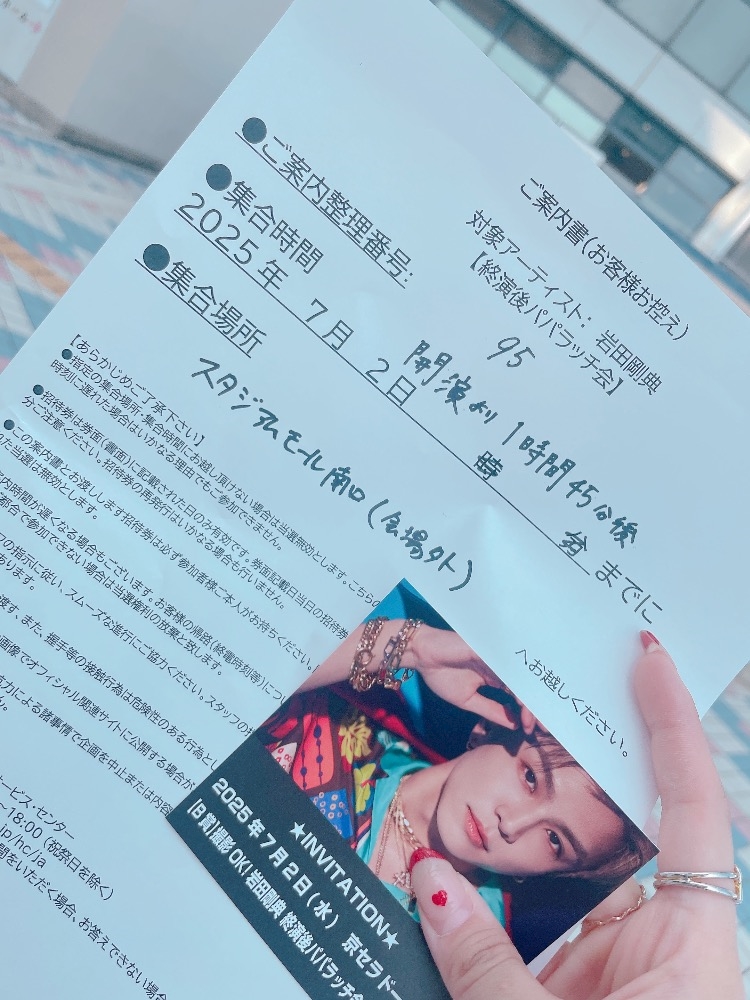 ご案内書（お客様お控え）
対象アーティスト： 岩田剛典
【終演後パパラッチ会】
●ご案内整理番号: 95
●集合時間
開演より1時間45分後
2025年 7月 2日 時 分 までに
●集合場所
スタジアムモール南口(会場外)
へお越しください。
【あらかじめご了承下さい】
●指定の集合場所・集合時間にお越し頂けない場合は当選無効とします。こちらの
時刻に遅れた場合はいかなる理由でもご参加できません。
●招待券は券面(書面)に記載された日のみ有効です。券面記載日当日の招待券
分ご注意ください。招待券の再発行はいかなる場合も行いません。
●この案内書とお渡しします招待券は必ず参加者様ご本人がお持ちください。
た当選は無効とします。
内時間が遅くなる場合もございます。お客様の帰路(終電時刻等)につい
都合で参加できない場合は当選権利の放棄と致します。
フの指示に従い、スムーズな進行にご協力ください。スタッフの
あります。
渡す、また、握手等の接触行為は危険性のある行為とし
画像でオフィシャル関連サイトに公開する場合が
力による諸事情で企画を中止または内容
ん。
ービス・センター
～18:00 (祝祭日を除く)
jp/hc/ja
間をいただく場合、お答えできない場合
★INVITATION★
2025年7月2日(水) 京セラドー
[B賞]撮影OK! 岩田剛典 終演後パパラッチ会